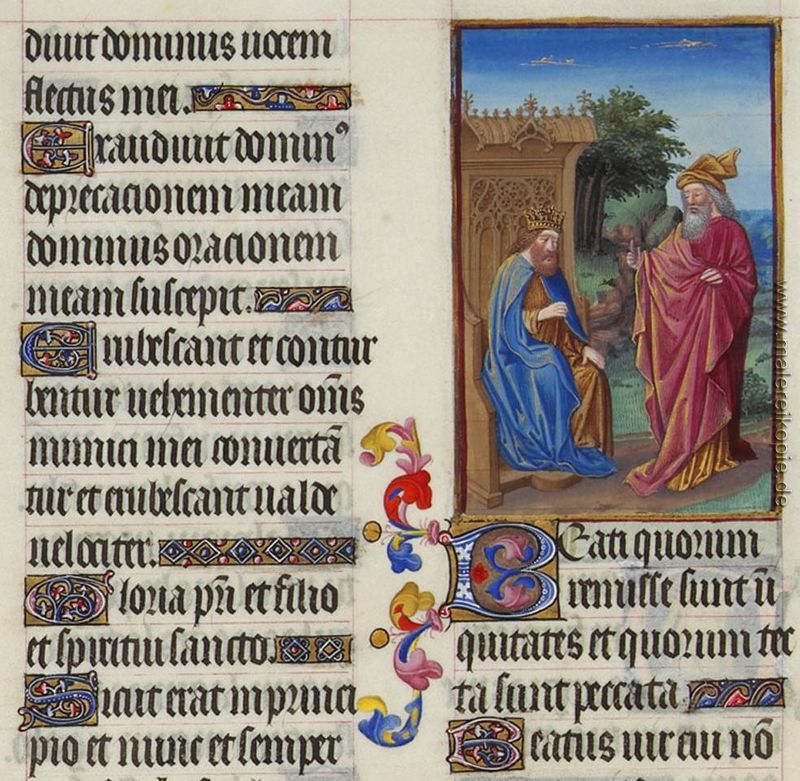 diuit dominus uocem
fletus mei.
Exaudiuit domin⁹
deprecacionem meam
dominus oracionem
meam suscepit.
Erubescant et contur
bentur uehementer om̄s
inimici mei conuertā
tur et erubescant ualde
uelociter.
Gloria pr̄i et filio
et spiritui sancto.
Sicut erat in princi
pio et nunc et semper
Beati quorum
remisse sunt ī
quitates et quorum tec
ta sunt peccata.
Beatus uir cui nō
www.malereikopie.de